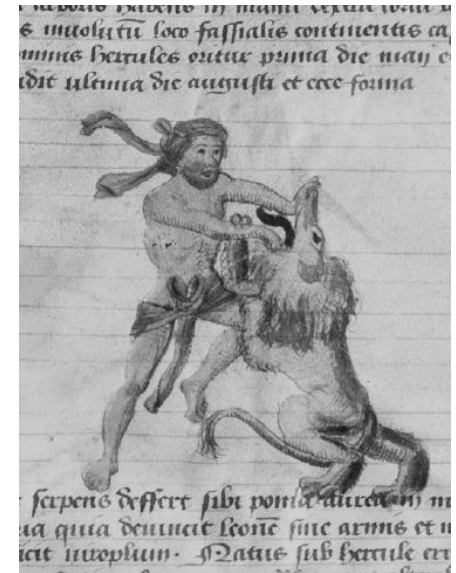 s inuolutū loco fassialis continentis ca
omnis hercules oritur prima die maij e
dit ultima die augusti et ecce forma
serpens deffert sibi poma aurea in m
ia quia deuincit leonē sine armis et
Natus sub hercule eri